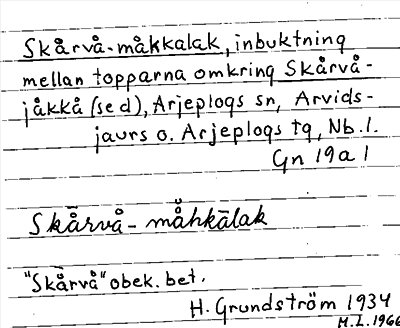 Skårvå-måkkalak, inbuktning
mellan topparna omkring Skårvå-
jåkkå (se d), Arjeplogs sn, Arvids-
jaurs o. Arjeplogs tg, Nb. l.
Gn 19 a 1
Skårvå- måhkālak
"Skårvå" obek. bet.
H. Grundström 1934
M.L. 1966